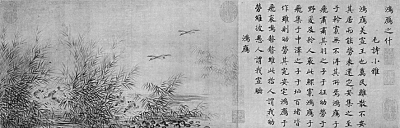 鴻鴈之什
毛詩小雅
鴻鴈美宣王也萬民離散不安
其居而能勞來還定安集之至
于矜寡無不得其所焉鴻鴈于
飛肅肅其羽之子于征劬勞于
野爰及矜人哀此鰥寡鴻鴈于
飛集于中澤之子于垣百堵皆
作雖則劬勞其究安宅鴻鴈于
飛哀鳴嗸嗸維此哲人謂我劬
勞維彼愚人謂我宣驕
鴻鴈